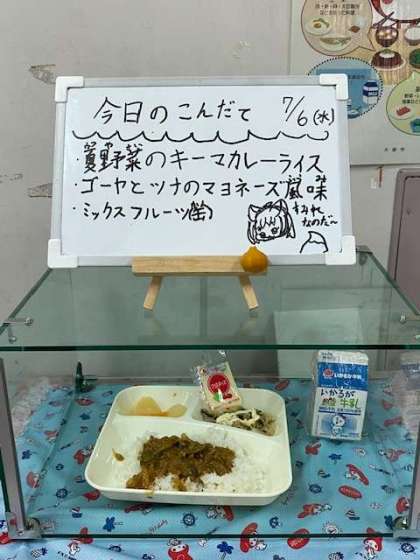 今日のこんだて 7/6(水)
・夏野菜のキーマカレーライス
・ゴーヤとツナのマヨネーズ風味
・ミックスフルーツ(缶)
すみれ
なのだ〜
いかるが牛乳
いかるが
牛乳